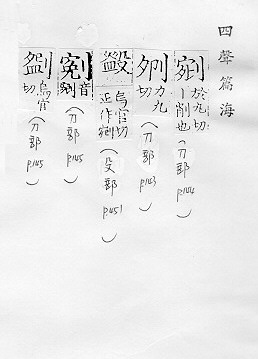 四聲篇海
剜
切
｜削也(刀部 p.144)
切(刀部 p.143)
烏官切
正作剜(殳部 p.451)
音剜(刀部 p.145)
烏官切(刀部 p.145)